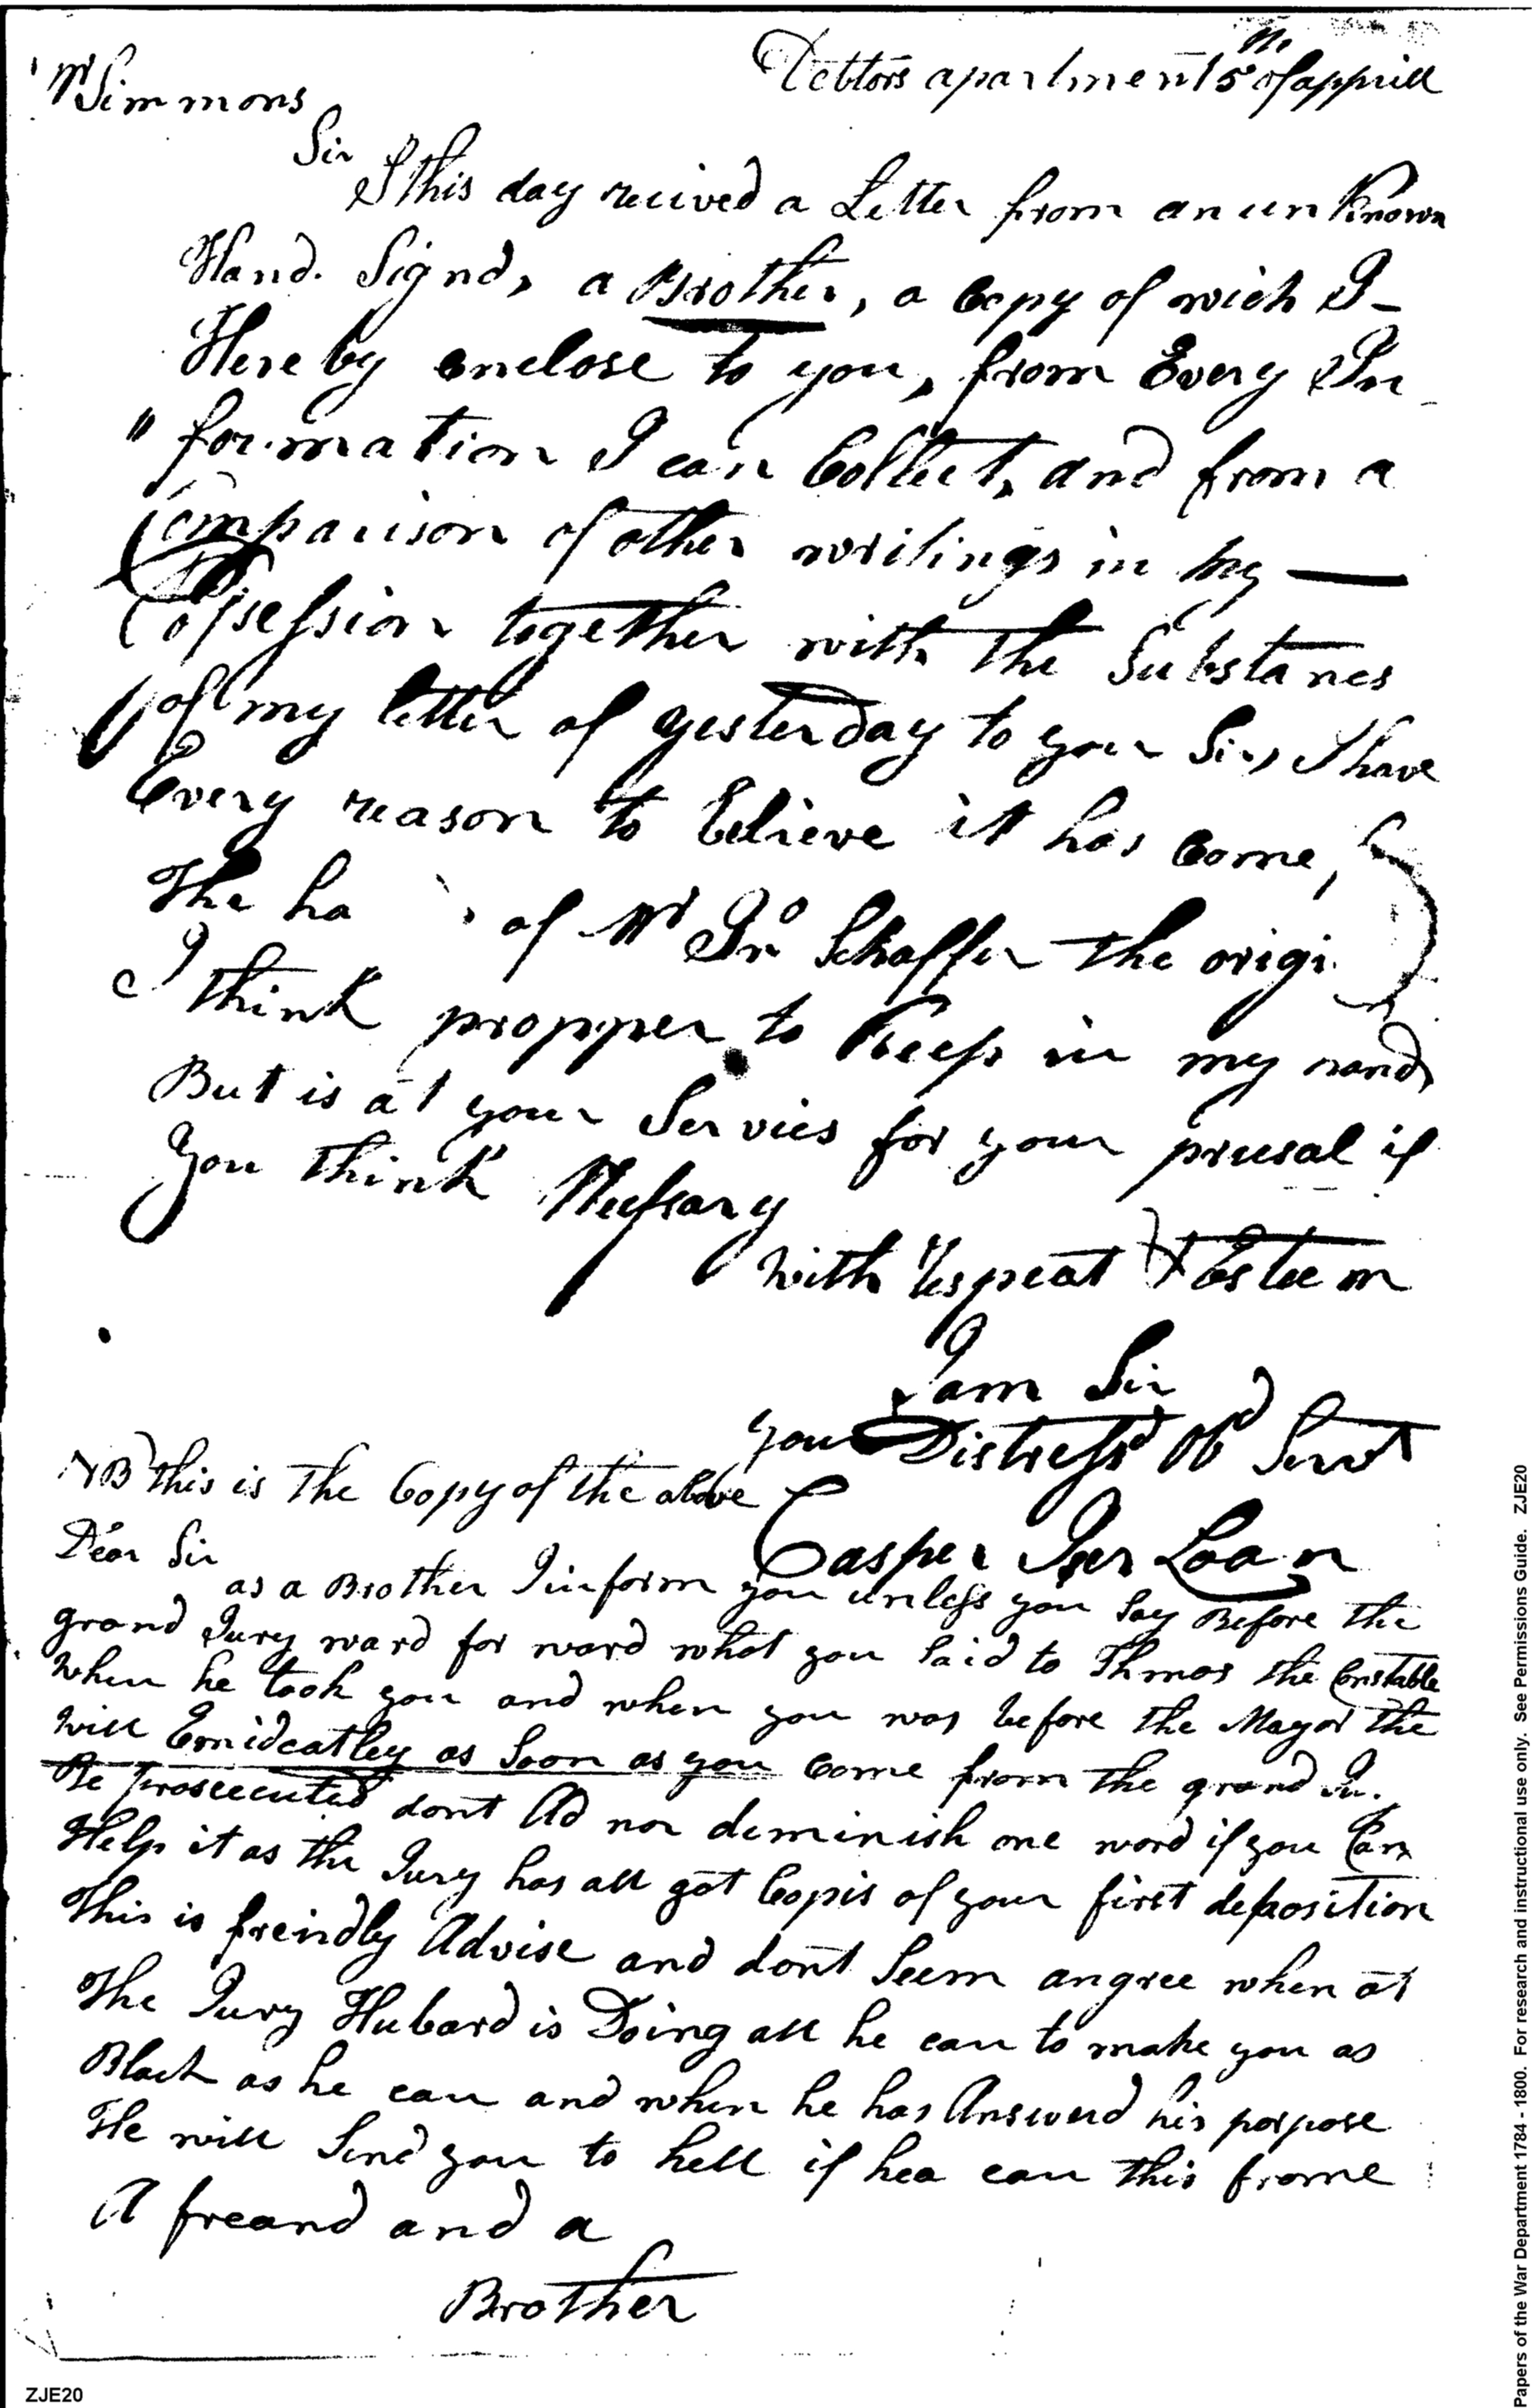 Debtors apartment 5th of apprill
Mr Simmons
Sir
I this day recived a Letter from an un Known
Hand. Signd, a Brother, a Copy of wich I
Here by enclose to you, from Every In
" formation I can Collect, and from a
Comparison of other writings in my
Possession together with the Substance
of my letter of yesterday to you Sir, I have
Every reason to believe it has Come,
The ha of Mr Jno Schaffer the origi
I think propper to Keep in my hand
But is at your Service for your prusal if
You think Necssary
With respect & Esteem
I am Sir
Your Distressd Obd Servt
Casper Iser Loan
NB this is The Copy of the above
Dear Sir
as a Brother I inform you unless you Say Before The
grand Jury ward for ward what you Said to Thmas the Constable
When he took you and when you was before the Mayor The
will Emideatley as Soon as you Come from The grand Ju.
Be prosecuted dont Ad nor deminish one word if you Can
Help it as the Jury has all got Copis of your first deposition
This is freindly Advise and dont Seem angree when at
The Jury Hubard is Doing all he can to make you as
Black as he can and when he has Answerd his porpose
He will Send you to hell if hea can this frome
A freand and a
Brother
ZJE20
Papers of the War Department 1784 - 1800. For research and instructional use only. See Permissions Guide. ZJE20